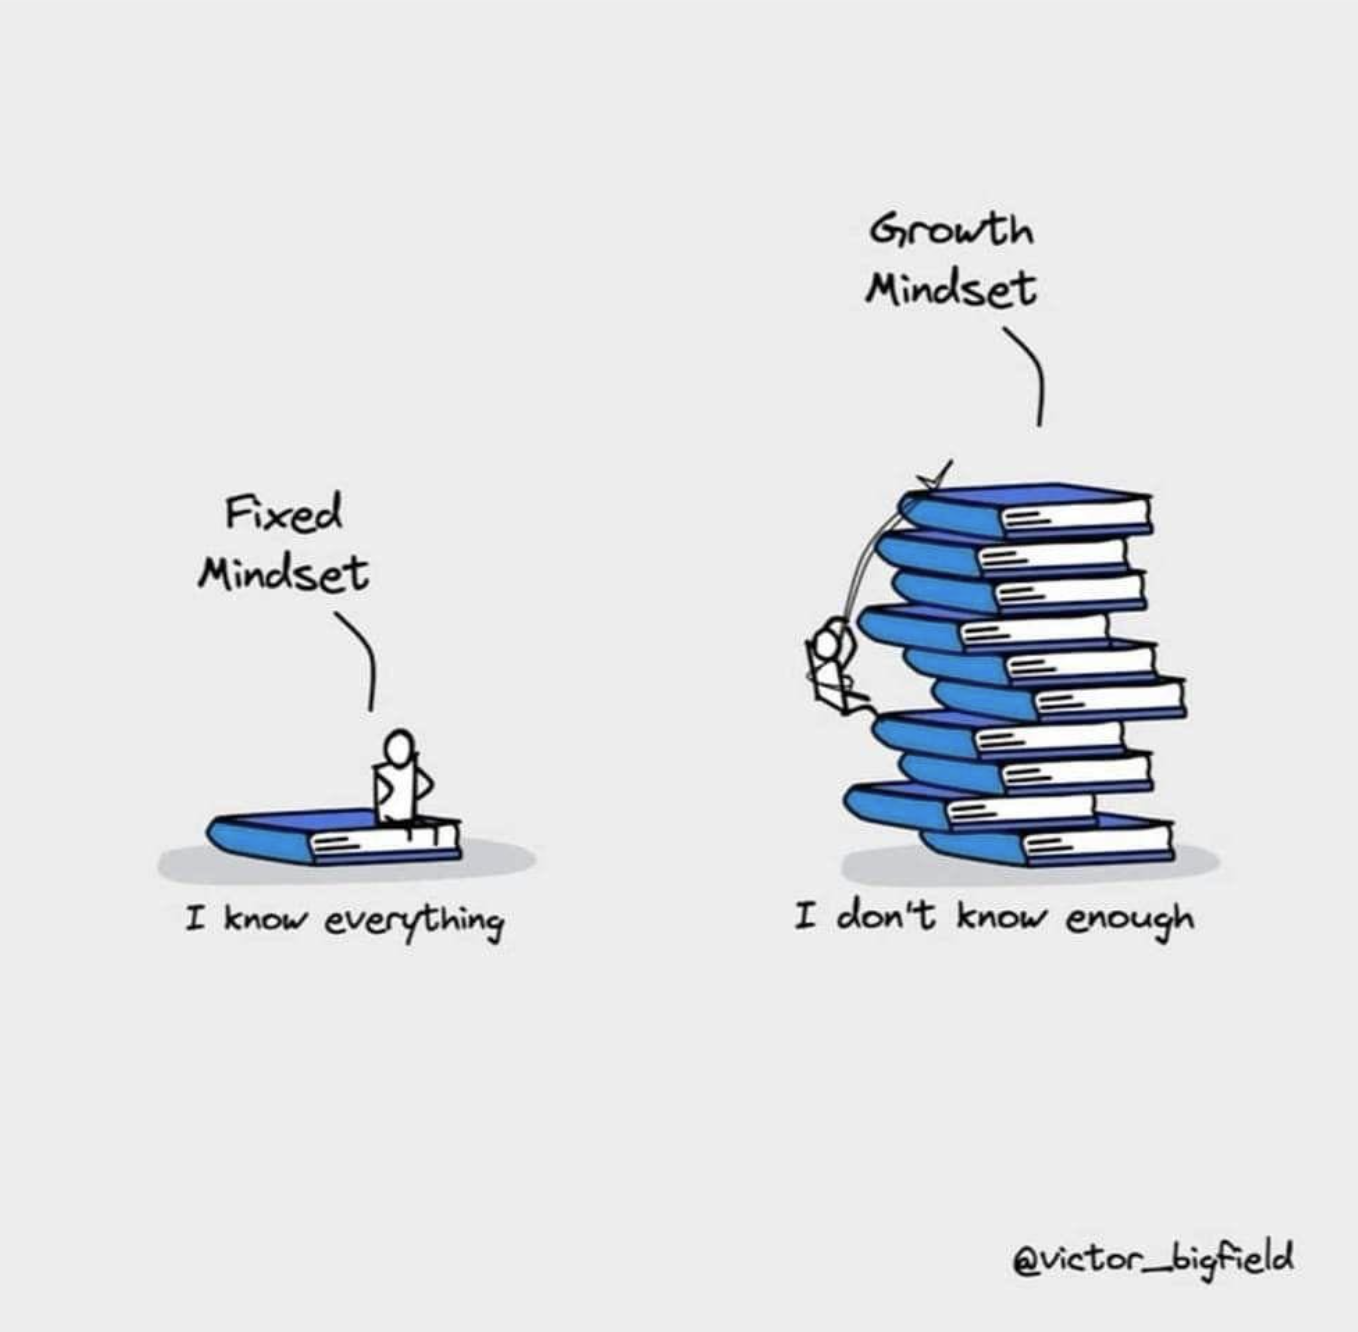 Fixed
Mindset
I know everything
Growth
Mindset
I don't know enough
@victor_bigfield